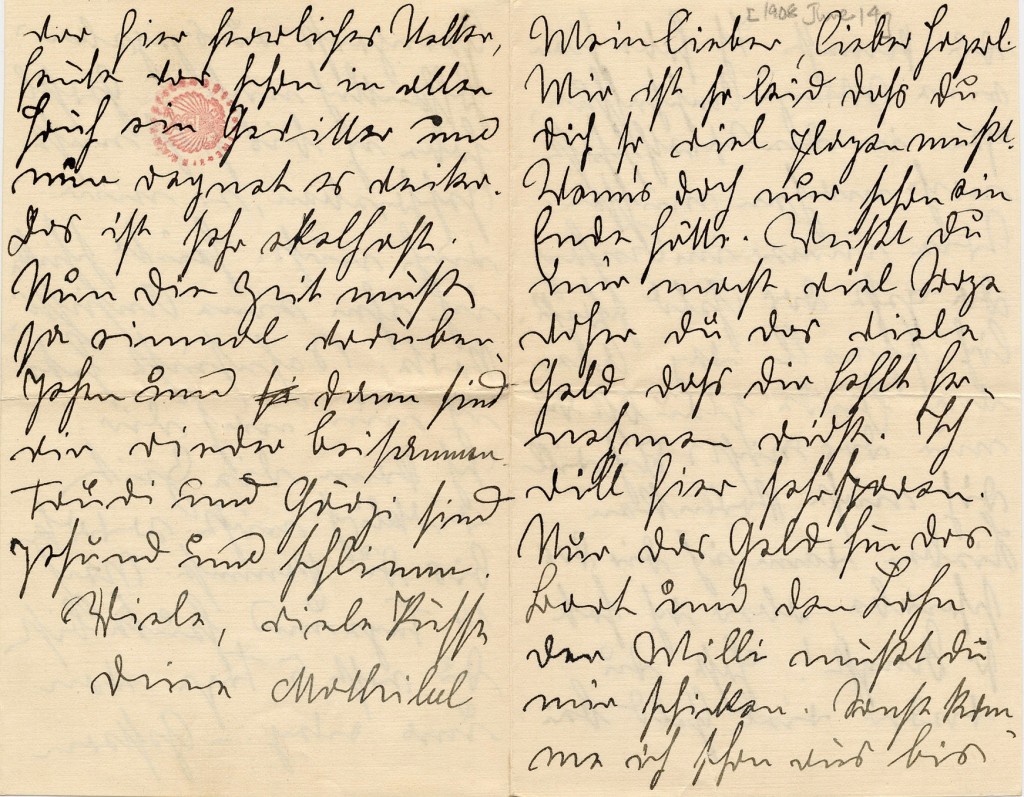 [1908 June 14]
Mein lieber, lieber
Mir ist so leid dass du
dich so viel plagen musst.
Wenn's doch nur schon ein
Ende hätte. Weißt du
mir macht viel Sorge
woher du das viele
Geld dass dir fehlt her-
nehmen wirst. Ich
will hier sehr sparen.
Nur das Geld für das
Boot und den Lohn
der Willi mußt du
mir schicken. Sonst kom-
me ich schon aus bis
war hier herrliches Wetter,
heute war schon in aller
Früh ein Gewitter und
nun regnet es weiter.
Das ist sehr ekelhaft.
Nun die Zeit muß
ja einmal vorüber
gehen und dann sind
wir wieder beisammen.
Trudi und Görgi sind
gesund und schlimm.
Viele, viele Küsse
deine Mathild